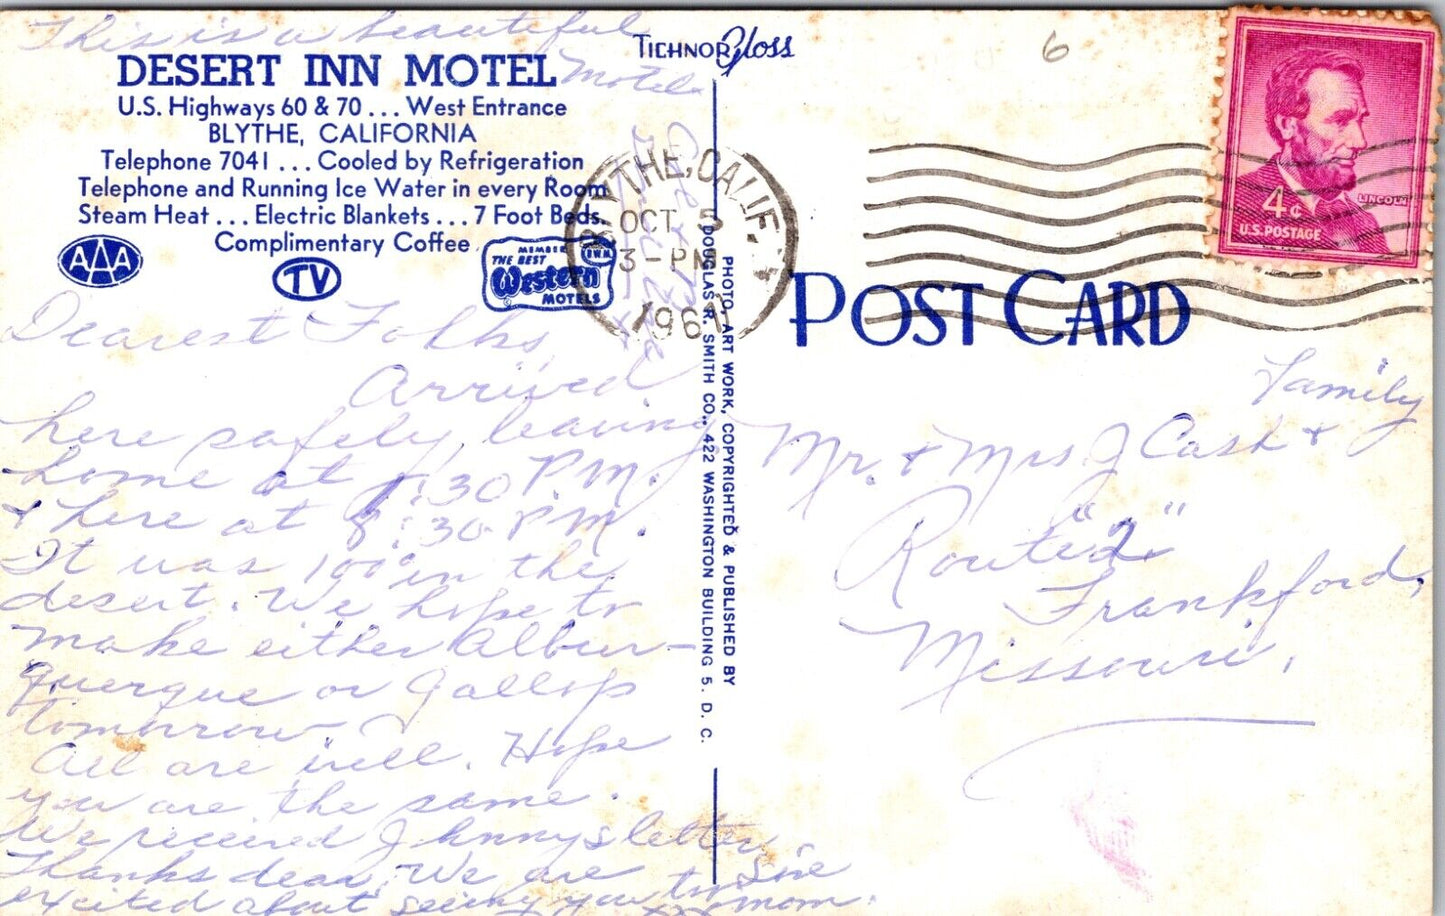 This is a beautiful
Motel
DESERT INN MOTEL
U.S. Highways 60 & 70 ... West Entrance
BLYTHE, CALIFORNIA
Telephone 7041 ... Cooled by Refrigeration
Telephone and Running Ice Water in every Room
Steam Heat ... Electric Blankets ... 7 Foot Beds.
Complimentary Coffee
AAA
TV
MEMBER
THE BEST
B.W.M.
Western
MOTELS
Dearest Folks
Arrived
here safely, leaving
home at 1:30 P.M.
& here at 8:30 P.M.
It was 100° in the
desert. We hope to
make either Albur-
querque or Gallop
tomorrow.
All are well. Hope
you are the same.
We received Johnnys letter
Thanks dear, We are
excited about seeing you
Sire
mom.
TICHNOR Gloss
6
BLYTHE, CALIF.
OCT 5
3-PM
1961
PHOTO, ART WORK, COPYRIGHTED & PUBLISHED BY
DOUGLAS R. SMITH CO., 422 WASHINGTON BUILDING 5, D. C.
4¢
LINCOLN
U.S. POSTAGE
POST CARD
Mr. & Mrs J Cash &
Family
Route "2"
Frankford,
Missouri.